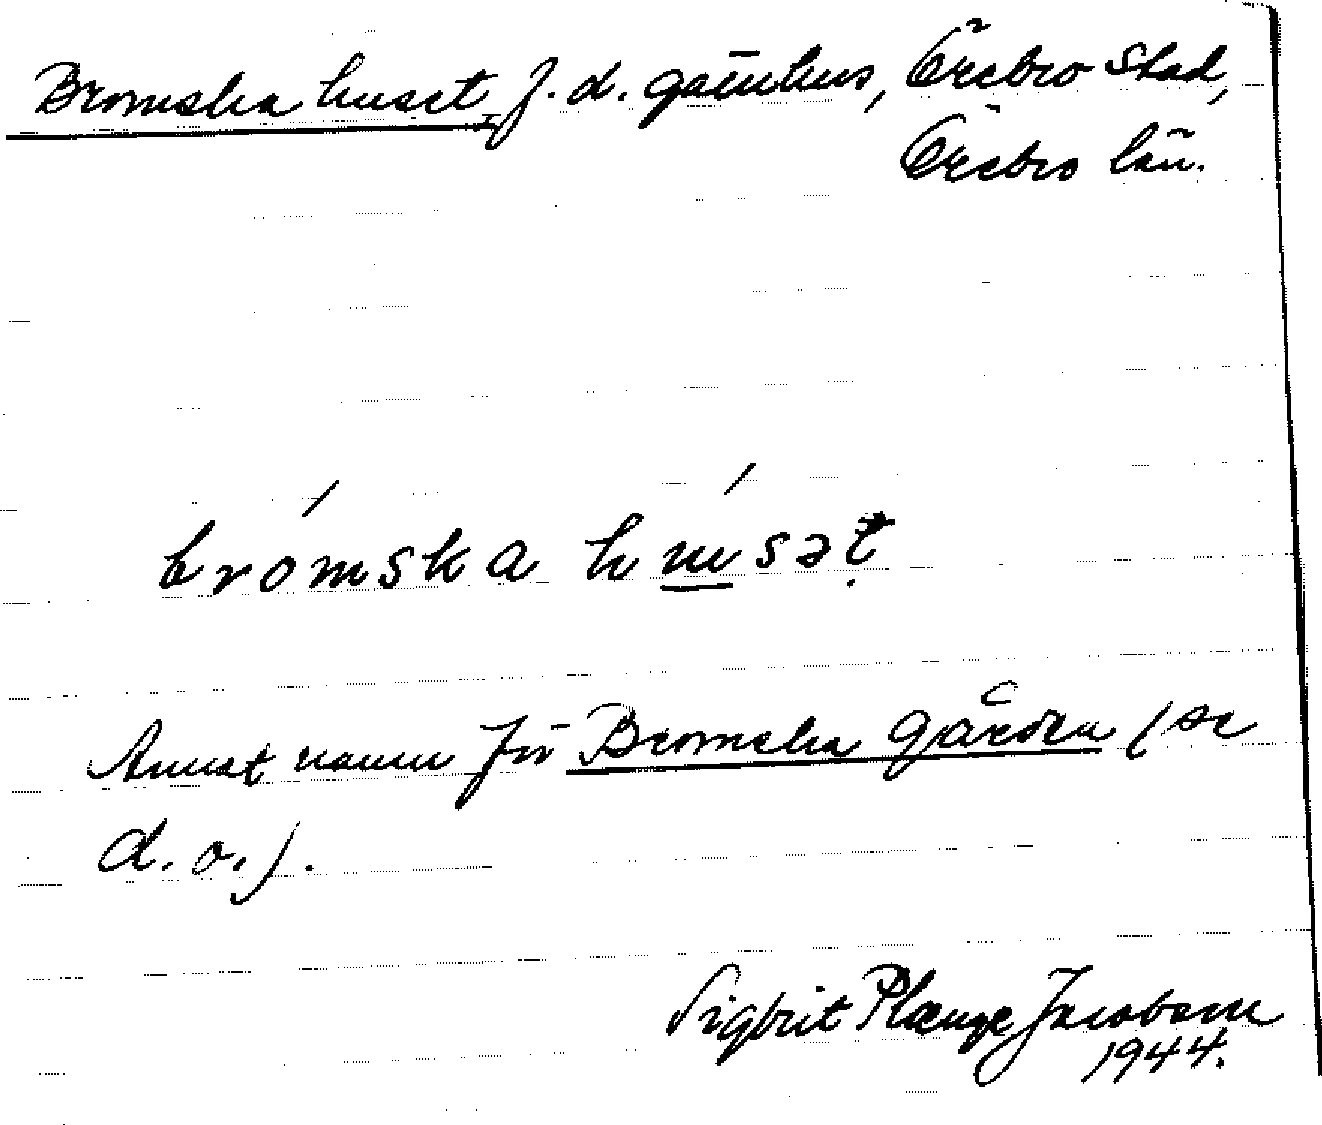 Bromska huset, f. d. gårdhus, Örebro stad,
Örebro län.
brómska húsət
Annat namn för Bromska gården (se
d. o.).
Sigbrit Plænge Jacobson
1944.